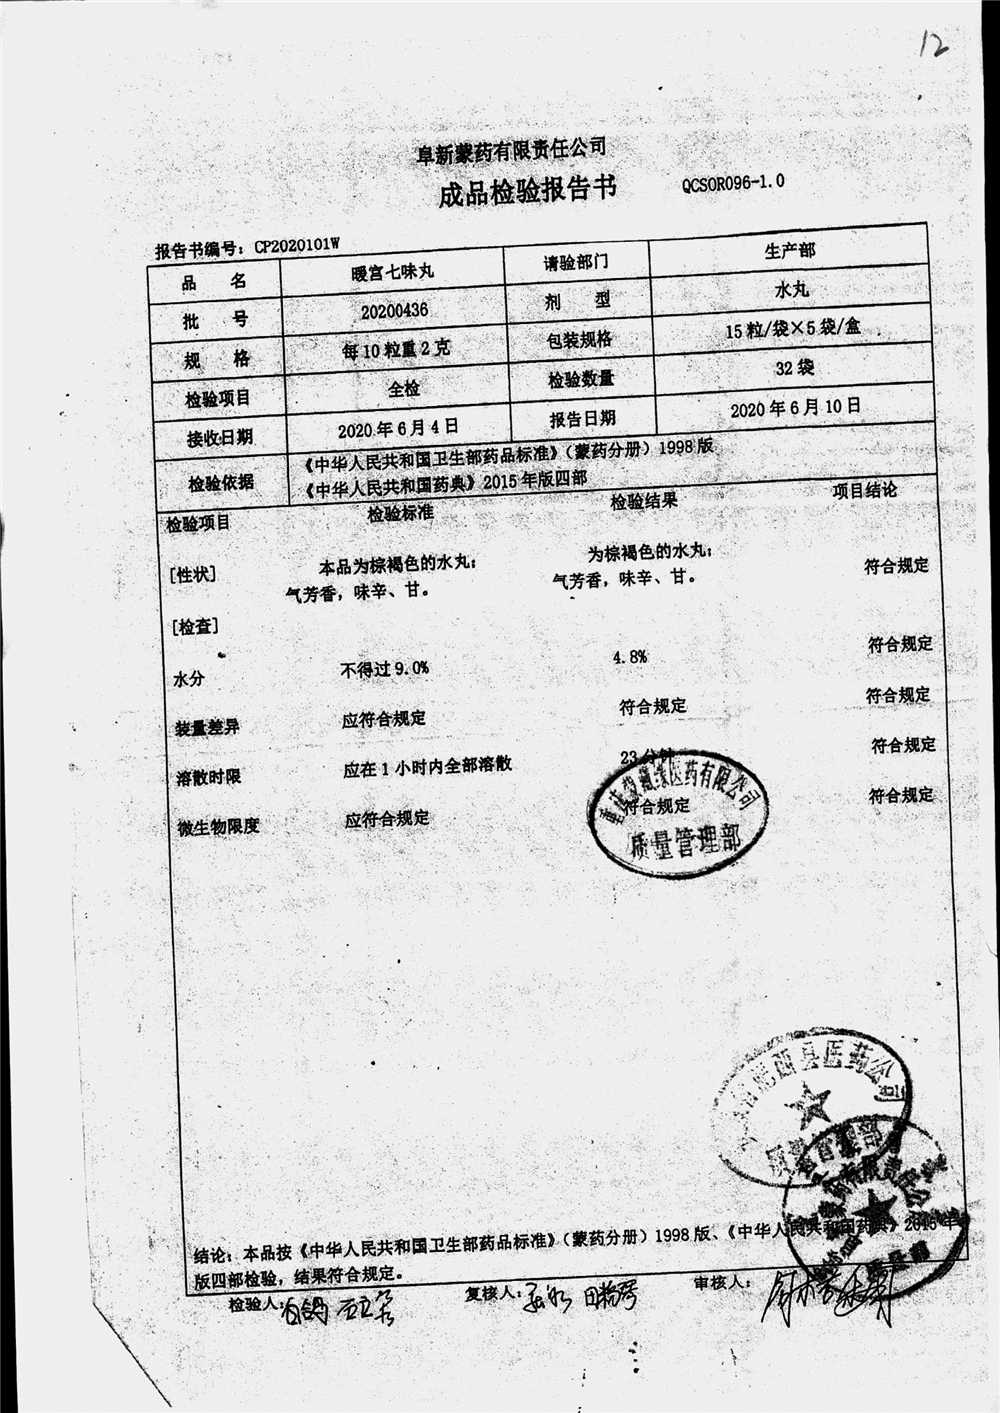 12
阜新蒙药有限责任公司
成品检验报告书 QCSOR096-1.0
报告书编号：CP2020101W
品 名 暖宫七味丸 请验部门 生产部
批 号 20200436 剂 型 水丸
规 格 每10粒重2克 包装规格 15粒/袋×5袋/盒
检验项目 全检 检验数量 32袋
接收日期 2020年6月4日 报告日期 2020年6月10日
检验依据 《中华人民共和国卫生部药品标准》（蒙药分册）1998版
《中华人民共和国药典》2015年版四部
检验项目 检验标准 检验结果 项目结论
[性状] 本品为棕褐色的水丸； 为棕褐色的水丸； 符合规定
气芳香，味辛、甘。 气芳香，味辛、甘。
[检查]
水分 不得过9.0% 4.8% 符合规定
装量差异 应符合规定 符合规定 符合规定
溶散时限 应在1小时内全部溶散 23分钟 符合规定
微生物限度 应符合规定 符合规定 符合规定
医药有限公司
质量管理部
县医药公司
结论：本品按《中华人民共和国卫生部药品标准》（蒙药分册）1998版、《中华人民共和国药典》2015年
版四部检验，结果符合规定。
检验人： 复核人： 审核人：